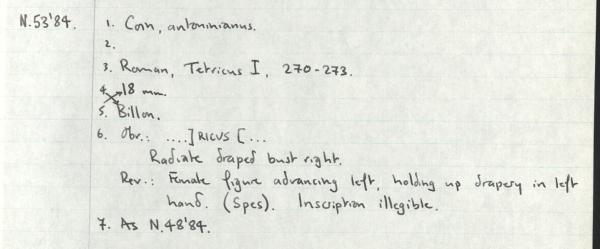 N.53'84. 1. Coin, antoninianus.
2.
3. Roman, Tetricus I, 270-273.
4. 18 mm.
5. Billon.
6. Obv.: ....] RICUS [...
Radiate draped bust right.
Rev.: Female figure advancing left, holding up drapery in left
hand. (Spes). Inscription illegible.
7. As N.48'84.